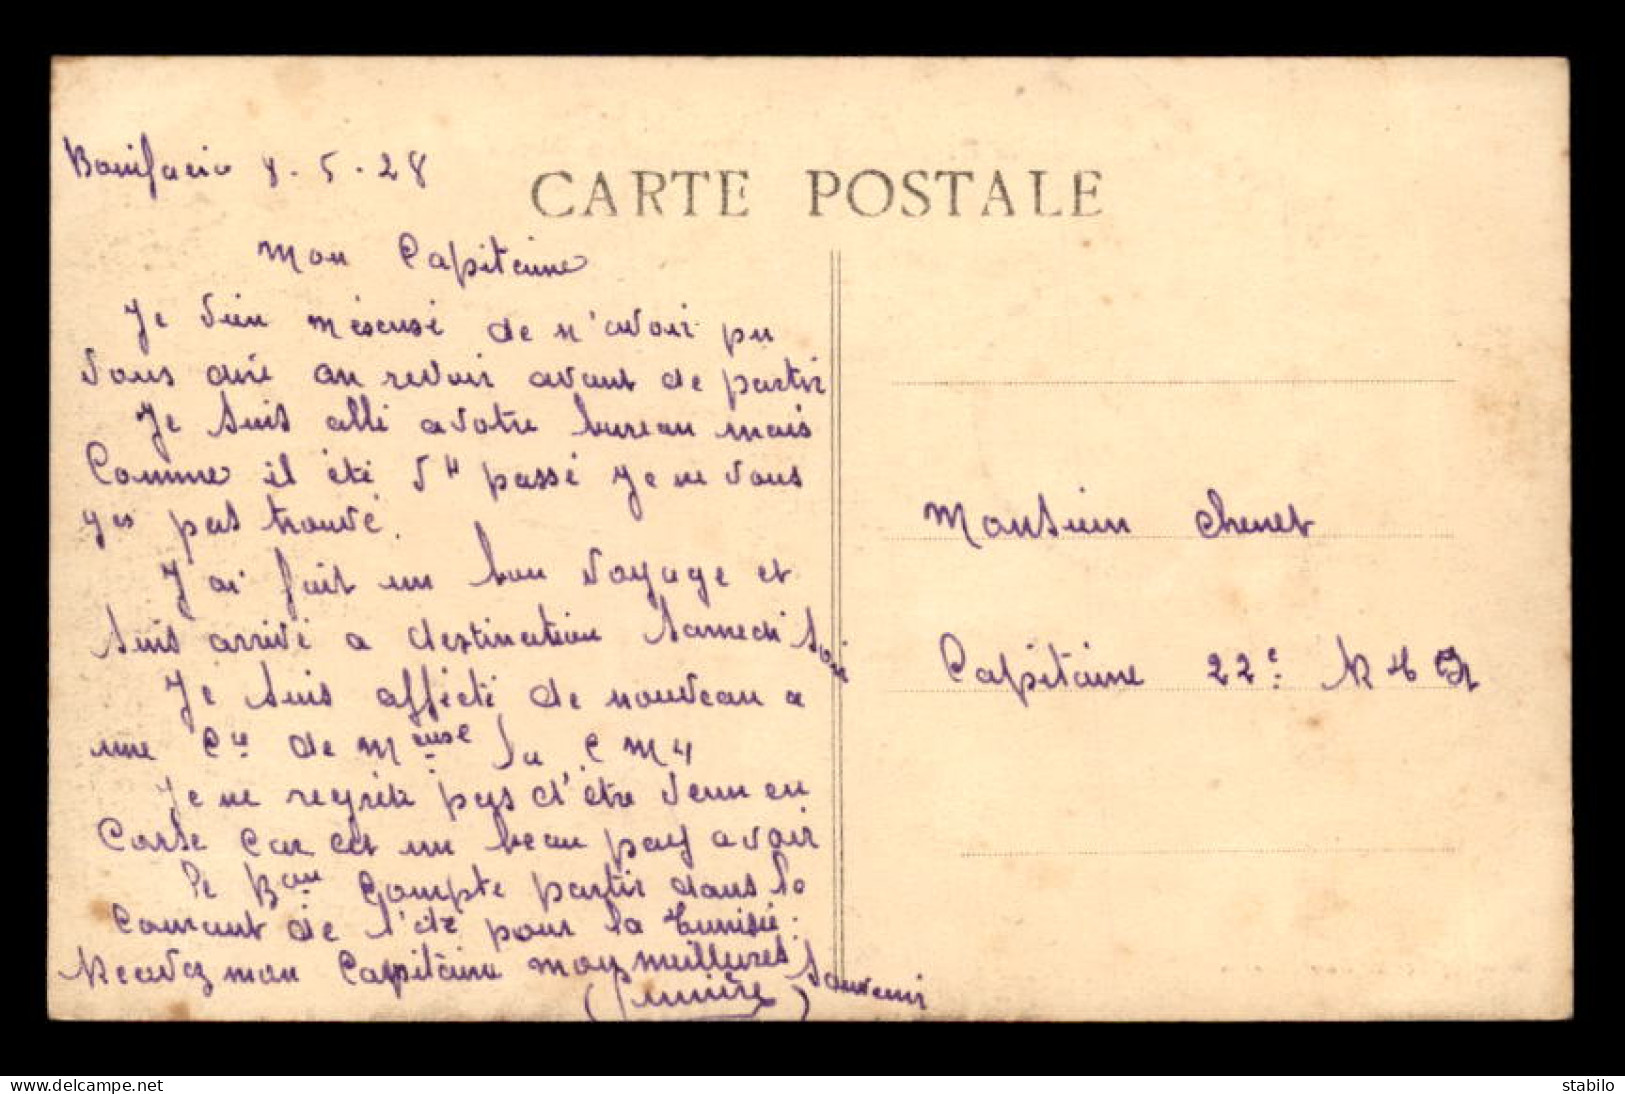 Bonifacio 8-5-28
CARTE POSTALE
Mon Capitaine
Je vien m'escusé de n'avoir pu
vous diré au revoir avant de partir
Je suis allé a votre bureau mais
Comme il été 5H passé Je ne vous
pas trouvé.
J'ai fait un bon voyage et
suis arrivé a destination Samedi soir
Je suis affecté de nouveau a
une Cie de Meuse la C M 4
Je ne regrète pas d'être venu en
Corse car est un beau pays a voir
le Bon Compte partir dans le
Courant de l'été pour la Tunisie.
Recevez mon Capitaine moy meilleures souvenir
Monsieur Chenet
Capitaine 22e
www.delcampe.net
stabilo